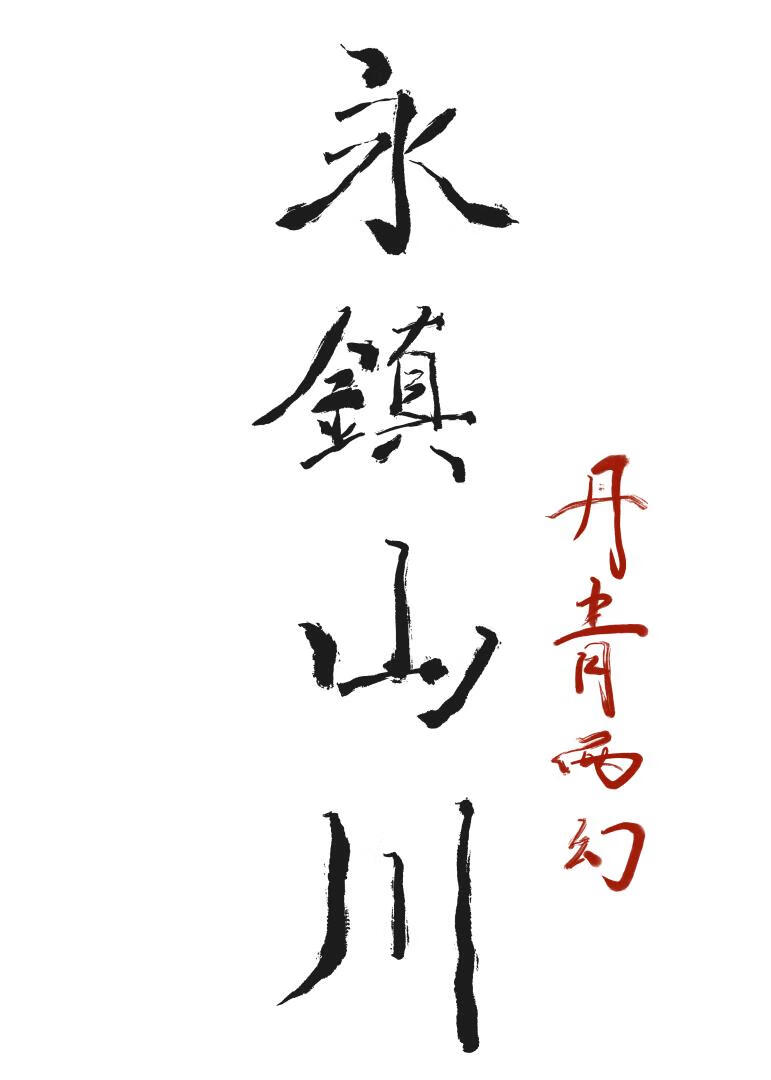 永鎮山川
丹青两幻